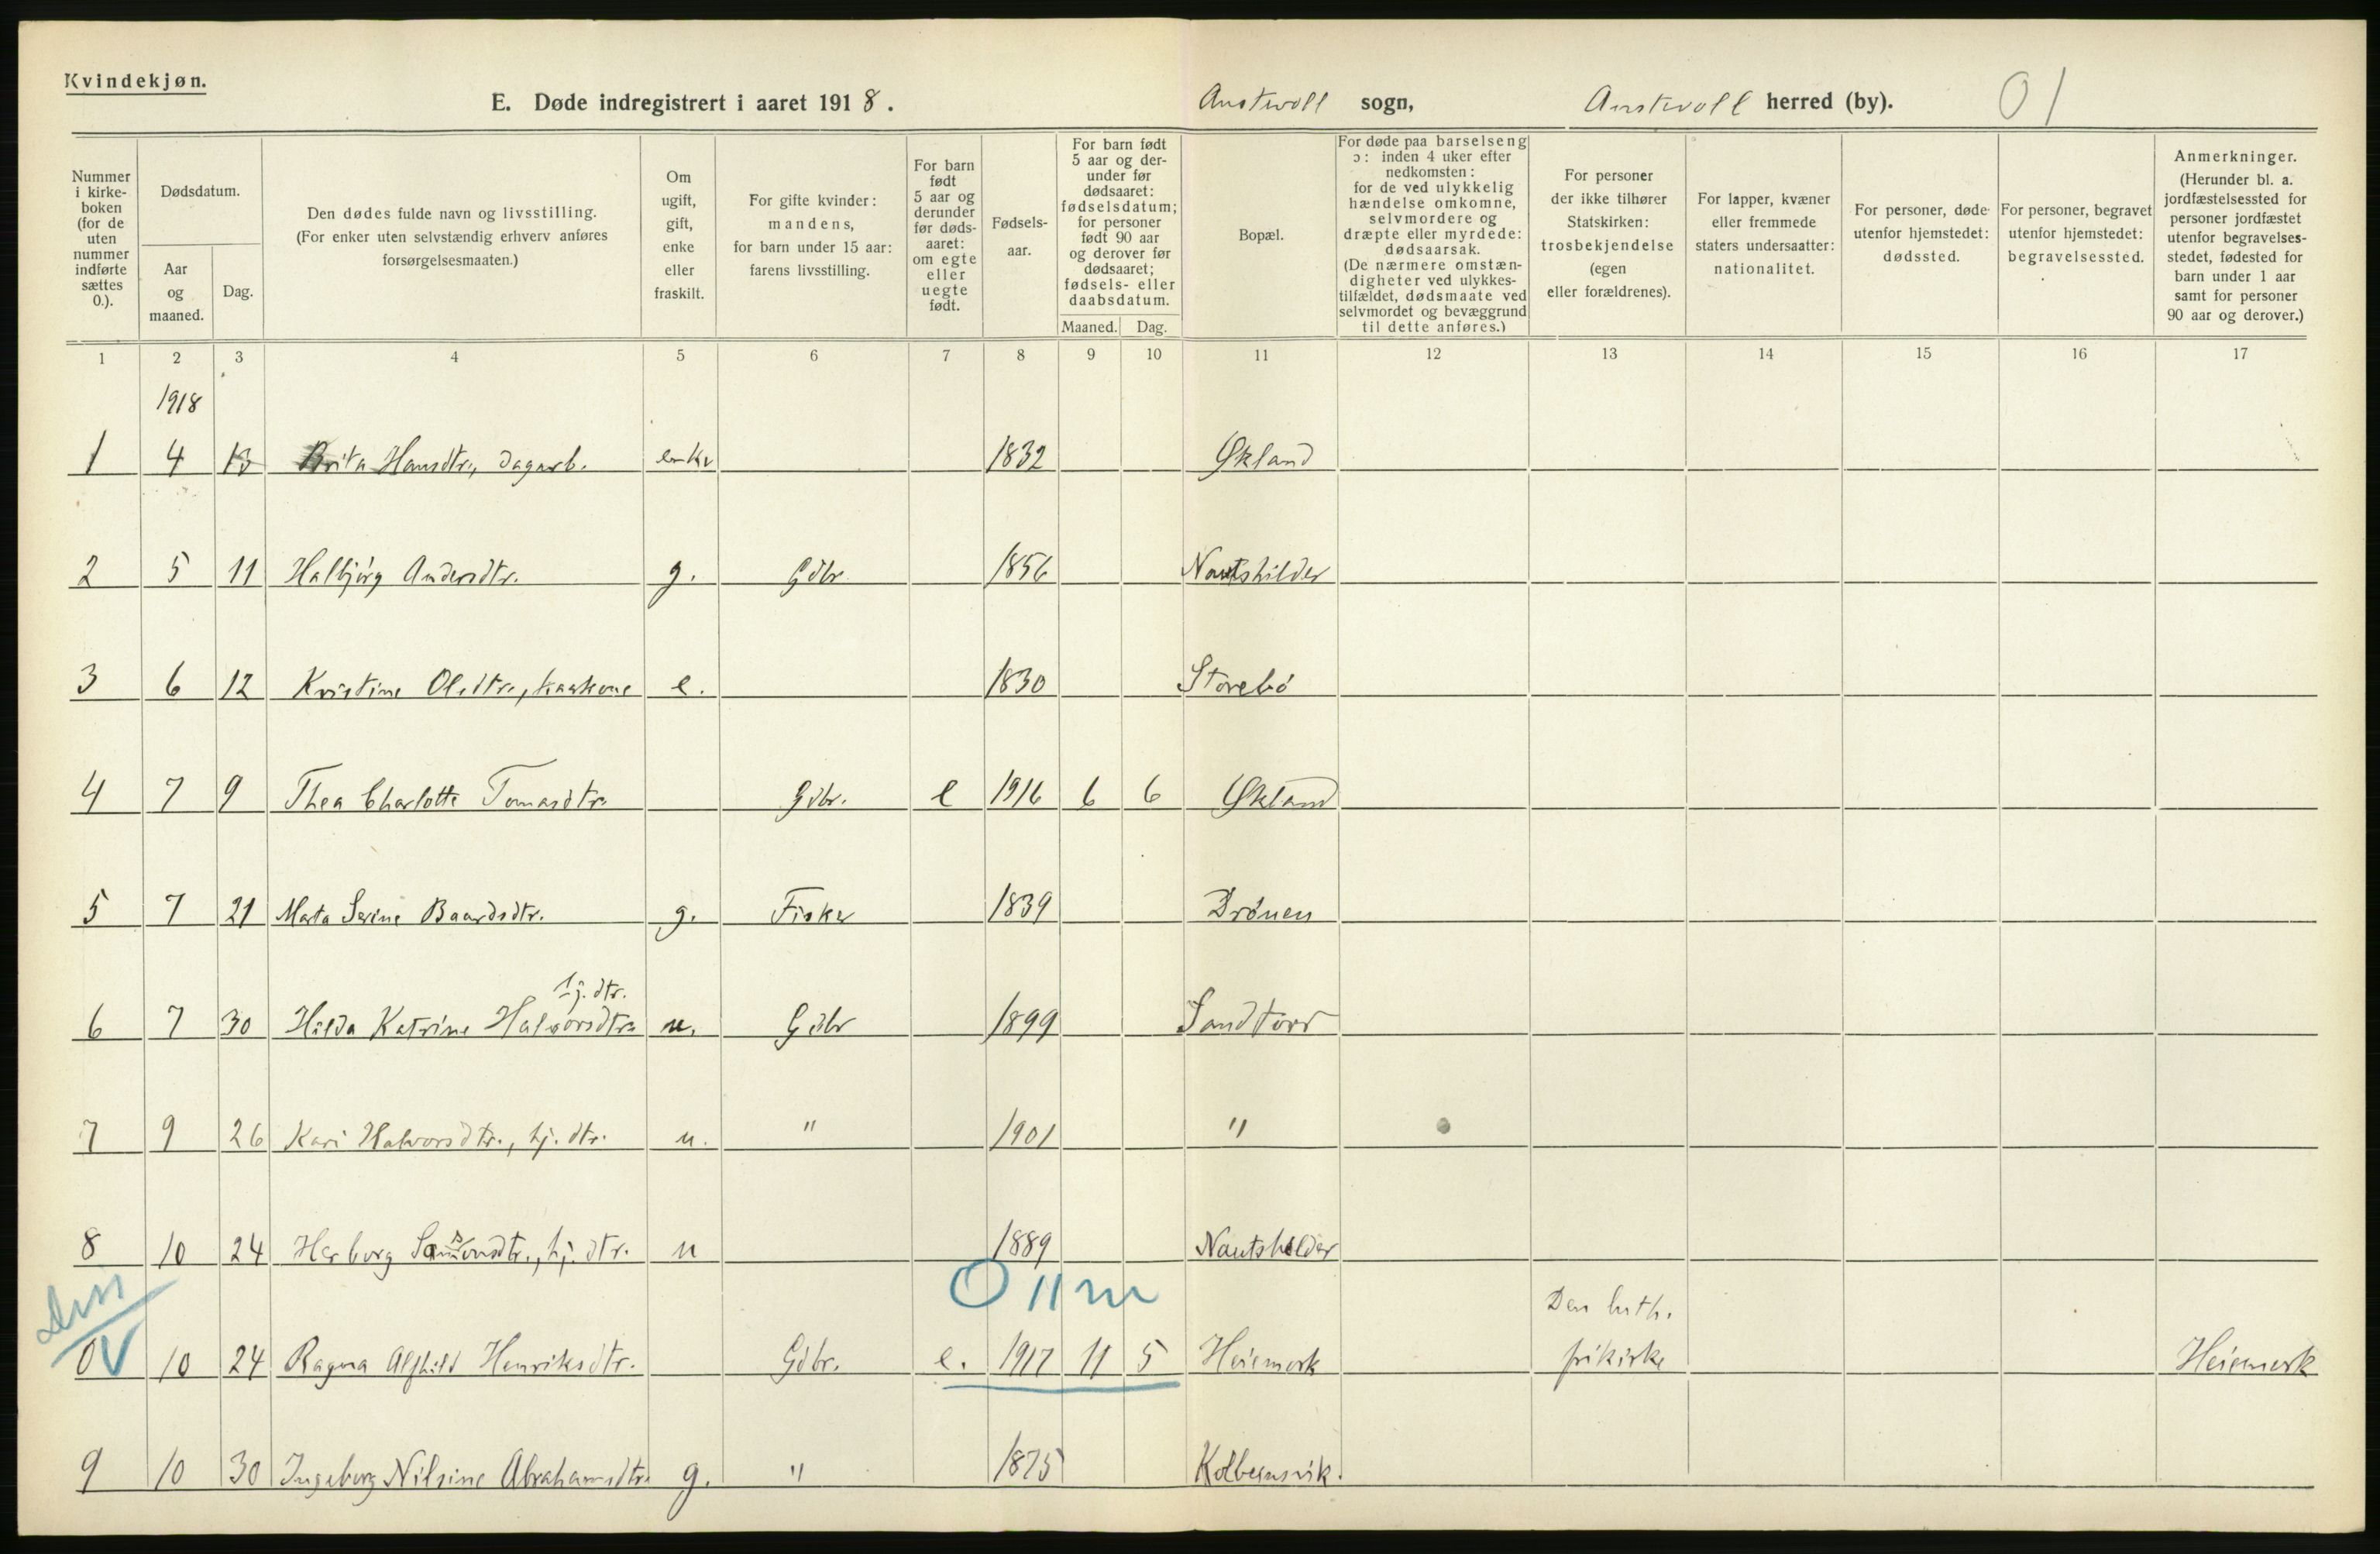 Kvindekjøn.
E. Døde indregistrert i aaret 1918. Austevoll sogn, Austevoll herred (by). 01
Nummer i kirkeboken (for de uten nummer indførte sættes 0.).
Dødsdatum.
Aar og maaned.
Dag.
Den dødes fulde navn og livsstilling.
(For enker uten selvstændig erhverv anføres forsørgelsesmaaten.)
Om ugift, gift, enke eller fraskilt.
For gifte kvinder: mandens, for barn under 15 aar: farens livsstilling.
For barn født 5 aar og derunder før dødsaaret: om egte eller uegte født.
Fødselsaar.
For barn født 5 aar og derunder før dødsaaret: fødselsdatum; for personer født 90 aar og derover før dødsaaret; fødsels- eller daabsdatum.
Maaned. Dag.
Bopæl.
For døde paa barselseng ɔ: inden 4 uker efter nedkomsten: for de ved ulykkelig hændelse omkomne, selvmordere og dræpte eller myrdede: dødsaarsak. (De nærmere omstændigheter ved ulykkestilfældet, dødsmaate ved selvmordet og bevæggrund til dette anføres.)
For personer der ikke tilhører Statskirken: trosbekjendelse (egen eller forældrenes).
For lapper, kvæner eller fremmede staters undersaatter: nationalitet.
For personer, døde utenfor hjemstedet: dødssted.
For personer, begravet utenfor hjemstedet: begravelsessted.
Anmerkninger. (Herunder bl. a. jordfæstelsessted for personer jordfæstet utenfor begravelsesstedet, fødested for barn under 1 aar samt for personer 90 aar og derover.)
1 2 3 4 5 6 7 8 9 10 11 12 13 14 15 16 17
1918
1 4 13 Brita Hansdtr., dagarb. enke 1832 Økland
2 5 11 Halbjörg Andersdtr. g. Gdbr 1856 Nautshilder
3 6 12 Kristine Olsdtr., kaarkone e. 1830 Storebö
4 7 9 Thea Charlotte Tomasdtr. Gdbr. e 1916 6 6 Økland
5 7 21 Marta Serine Baardsdtr. g. Fisker 1839 Drönen
hj. dtr.
6 7 30 Hilda Katrine Halvorsdtr. u. Gdbr 1899 Sandtorv
7 9 26 Kari Halvorsdtr., hj. dtr. u. " 1901 "
8 10 24 Herborg Samsonsdtr., hj. dtr. u 1889 Nautshilder
O 11 m
Den luth.
0 10 24 Ragna Alfhild Henriksdtr. Gdbr. e. 1917 11 5 Heiemark frikirke Heiemark
9 10 30 Ingeborg Nilsine Abrahamsdtr. g. " 1875 Kolbeinsvik.